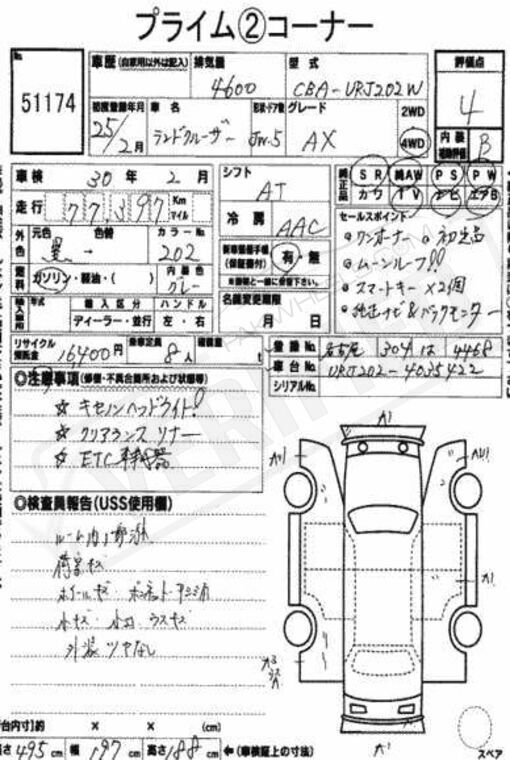 プライム②コーナー
No. 51174
車歴 (自家用以外は記入) 排気量 4600 型式 CBA-URJ202W 評価点 4
初度登録年月 25/2月 車名 ランドクルーザー 形状・ドア数 JW.5 グレード AX 2WD 4WD 内装 補助評価 B
車検 30年 2月 シフト AT 純正品 SR 純AW PS PW
カワ TV ナビ エアB
走行 77,397 Km マイル 冷房 AAC
外色 元色 黒 色替 → カラーNo. 202
セールスポイント
新車整備手帳 (保証書付) 有・無
・ワンオーナー
・ムーンルーフ!!
・スマートキー×2個
・純正ナビ&バックモニター
燃料 ガソリン・軽油・( ) 内装色 グレー
名義変更期限 月 日
年式 輸入区分 ハンドル
ディーラー・並行 左・右
リサイクル預託金 16400円 乗車定員 8人 積載量 t
登録No. 名古屋 304 は 4468
車台No. URJ202-4035422
シリアルNo.
◎注意事項 (修復・不具合箇所および状態等)
☆ キセノンヘッドライト!
☆ クリアランスソナー
☆ ETC車載器
◎検査員報告(USS使用欄)
ルーム内
荷室キズ
ホイールキズ・ボンネット
小キズ・小凹・ウスキズ
外装ツヤなし
A1
A1
A1
A1
スペア
荷台内寸)約 × × (cm)
長さ 495 cm 幅 197 cm 高さ 188 cm ←(車検証上の寸法)
PAKWHEELS.COM
VERIFIED